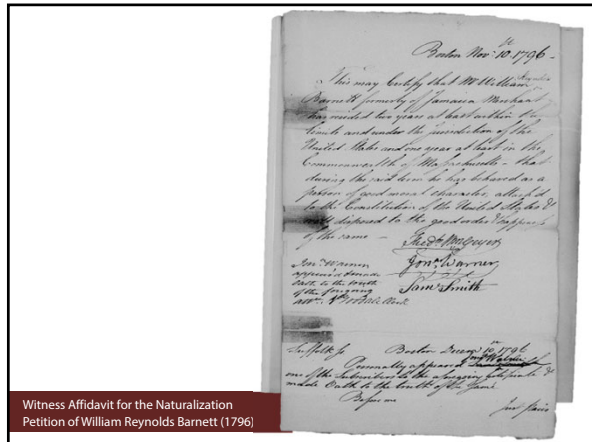 Boston Nov: 10 1796 -
This may Certify that Mr William Reynolds
Barnett formerly of Jamaica Merchant
has resided two years at least within the
limits and under the jurisdiction of the
United States and one year at least in this
Commonwealth of Massachusetts - that
during the said term he has behaved as a
person of good moral character, attach'd
to the Constitution of the United States &
well disposed to the good order & happiness
of the same -
Jona Warner
Sam Smith
Jona Warner
appeared & made
oath to the truth
of the foregoing
Suffolk ss Boston 10 1796
Personally appeared
one of the Subscribers to the foregoing Certificate &
made Oath to the truth of the same
Before me
Witness Affidavit for the Naturalization
Petition of William Reynolds Barnett (1796)